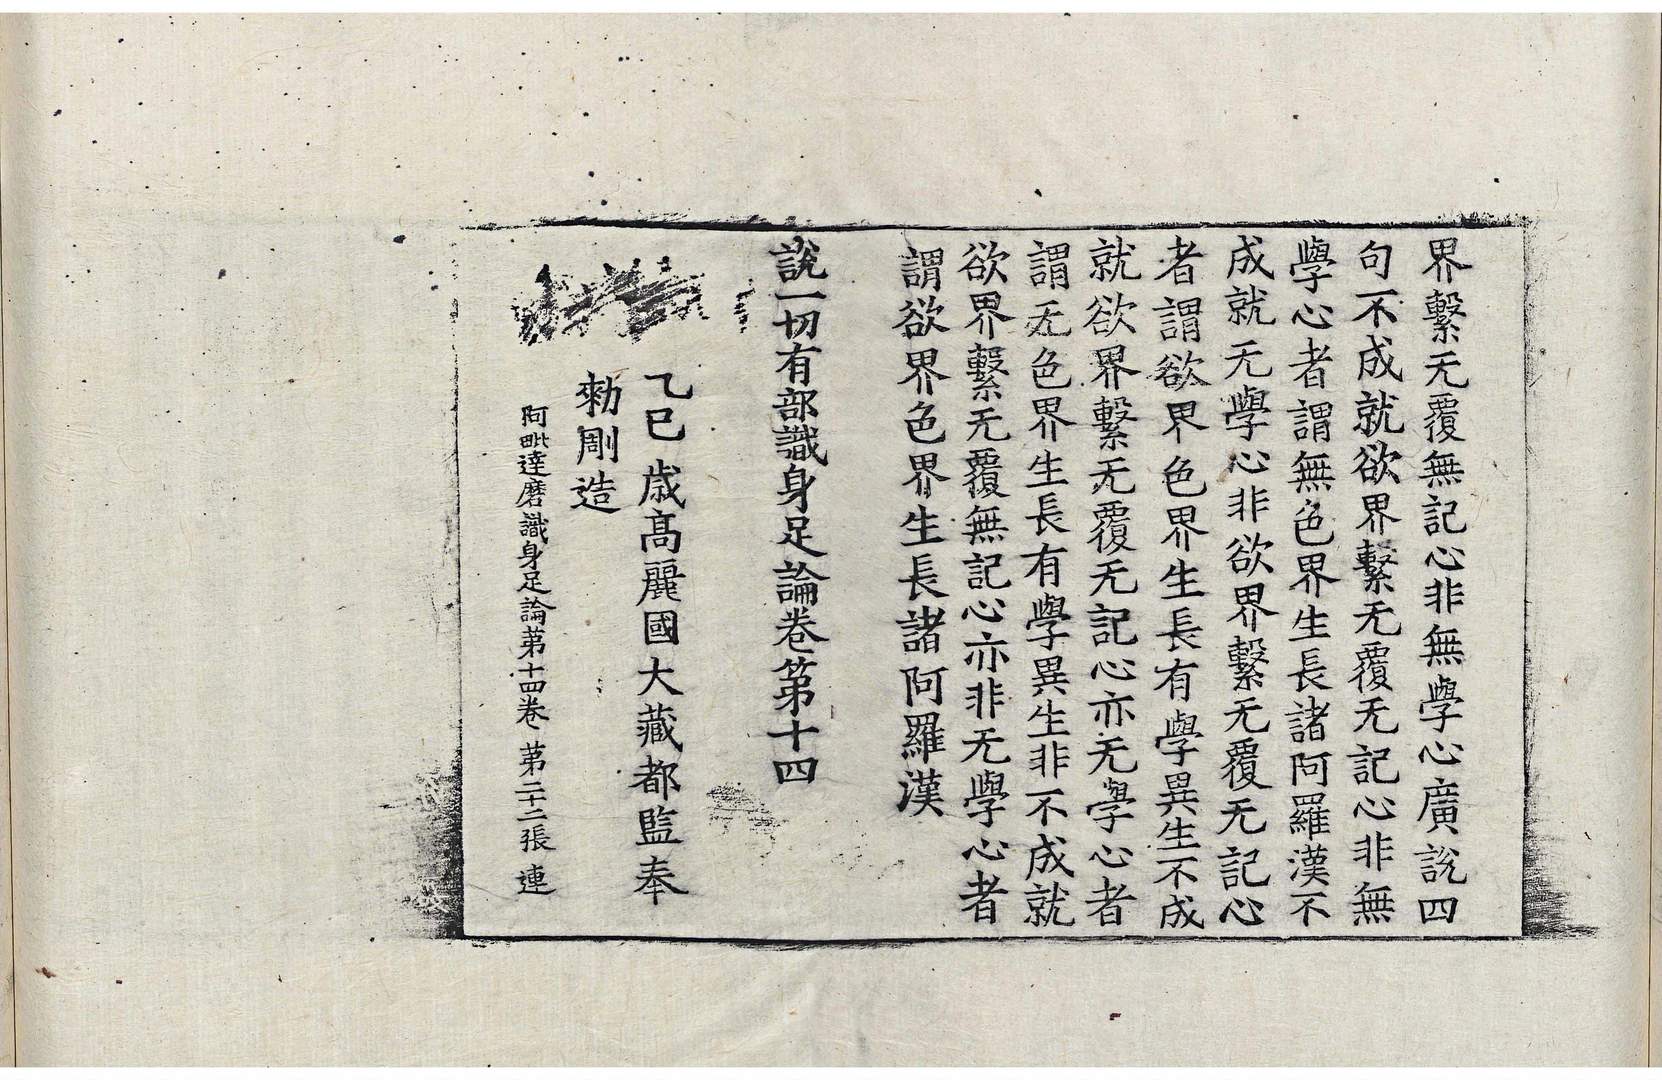 界繫无覆無記心非無學心廣說四
句不成就欲界繫无覆无記心非無
學心者謂無色界生長諸阿羅漢不
成就无學心非欲界繫无覆无記心
者謂欲界色界生長有學異生不成
就欲界繫无覆无記心亦无學心者
謂无色界生長有學異生非不成就
欲界繫无覆無記心亦非无學心者
謂欲界色界生長諸阿羅漢
說一切有部識身足論卷第十四
乙巳歲高麗國大藏都監奉
勑剛造
阿毗達磨識身足論第十四卷 第二十二張 連